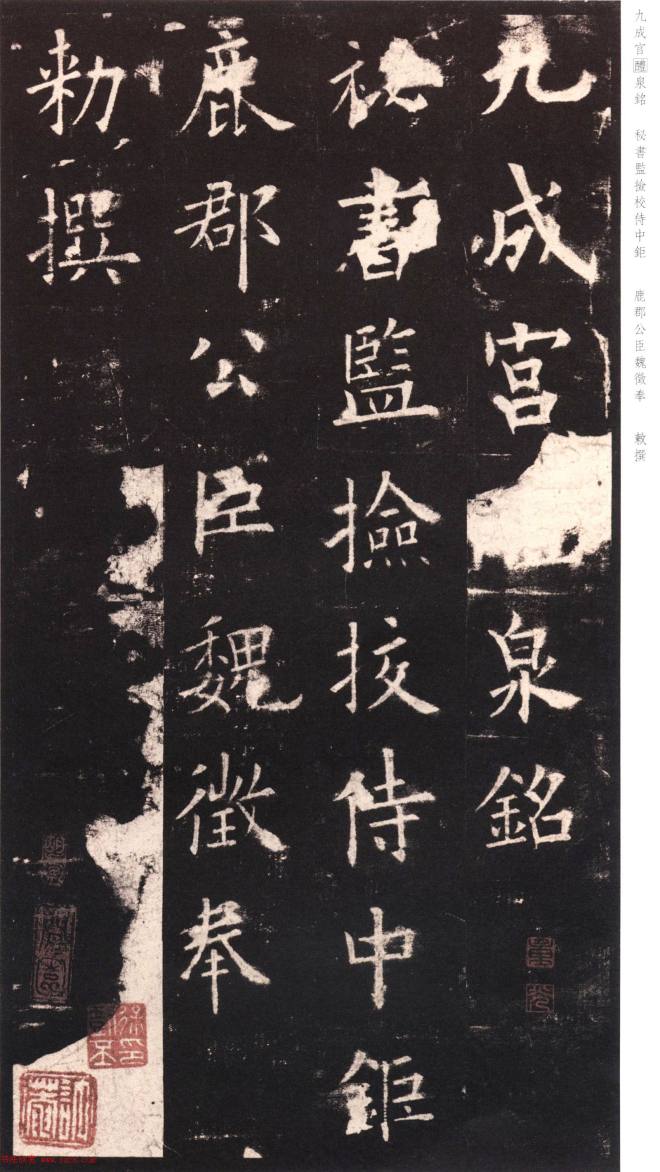 九成宮泉銘
祕書監撿挍侍中鉅
鹿郡公臣魏徵奉
勑撰
九成宫醴泉銘 秘書監撿校侍中鉅 鹿郡公臣魏徵奉 敕撰